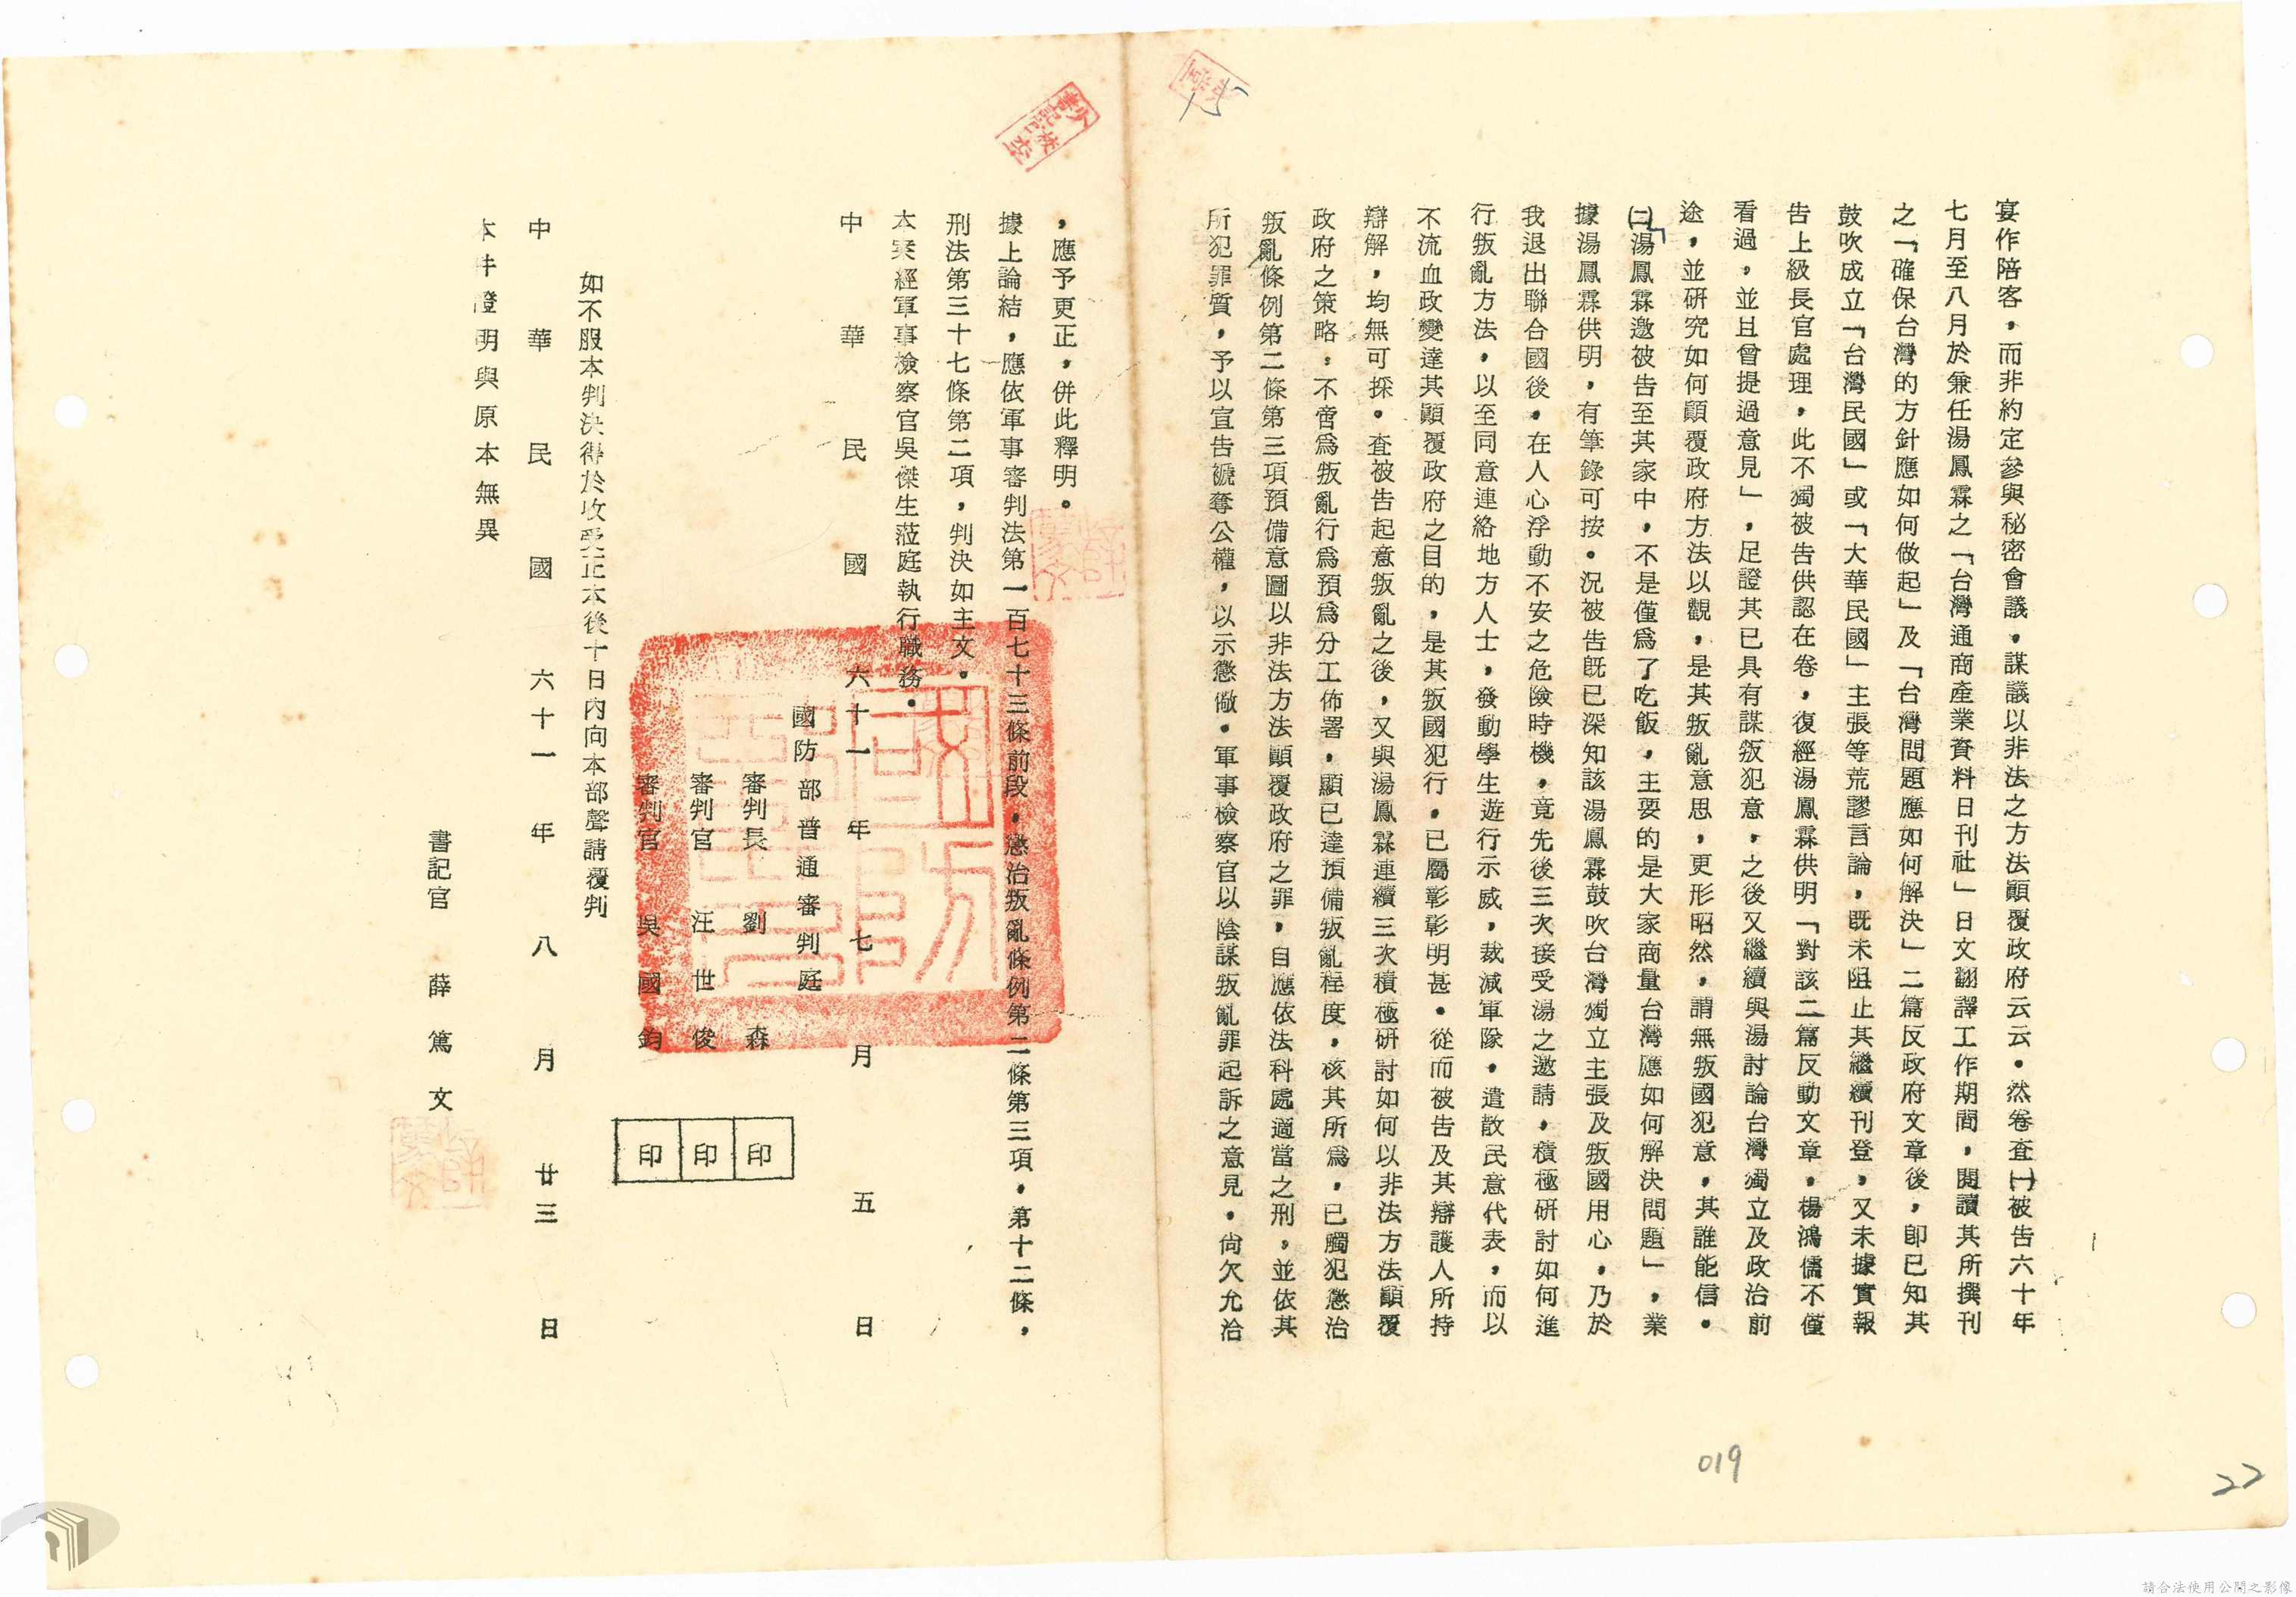 宴作陪客，而非約定參與秘密會議，謀議以非法之方法顚覆政府云云。然卷查㈠被告六十年
七月至八月於兼任湯鳳霖之「台灣通商產業資料日刊社」日文翻譯工作期間，閱讀其所撰刊
之「確保台灣的方針應如何做起」及「台灣問題應如何解決」二篇反政府文章後，卽已知其
鼓吹成立「台灣民國」或「大華民國」主張等荒謬言論，既未阻止其繼續刊登，又未據實報
告上級長官處理，此不獨被告供認在卷，復經湯鳳霖供明「對該二篇反動文章，楊鴻儒不僅
看過，並且曾提過意見」，足證其已具有謀叛犯意，之後又繼續與湯討論台灣獨立及政治前
途，並研究如何顚覆政府方法以觀，是其叛亂意思，更形昭然，謂無叛國犯意，其誰能信。
㈡湯鳳霖邀被告至其家中，不是僅爲了吃飯，主要的是大家商量台灣應如何解決問題」，業
據湯鳳霖供明，有筆錄可按。況被告既已深知該湯鳳霖鼓吹台灣獨立主張及叛國用心，乃於
我退出聯合國後，在人心浮動不安之危險時機，竟先後三次接受湯之邀請，積極研討如何進
行叛亂方法，以至同意連絡地方人士，發動學生遊行示威，裁減軍隊，遣散民意代表，而以
不流血政變達其顚覆政府之目的，是其叛國犯行，已屬彰彰明甚。從而被告及其辯護人所持
辯解，均無可採。查被告起意叛亂之後，又與湯鳳霖連續三次積極研討如何以非法方法顚覆
政府之策略，不啻爲叛亂行爲預爲分工佈署，顯已達預備叛亂程度，核其所爲，已觸犯懲治
叛亂條例第二條第三項預備意圖以非法方法顚覆政府之罪，自應依法科處適當之刑，並依其
所犯罪質，予以宣告褫奪公權，以示懲儆。軍事檢察官以陰謀叛亂罪起訴之意見，尚欠允洽
，應予更正，併此釋明。
據上論結，應依軍事審判法第一百七十三條前段，懲治叛亂條例第二條第三項，第十二條，
刑法第三十七條第二項，判決如主文。
本案經軍事檢察官吳傑生蒞庭執行職務。
中華民國六十一年七月五日
國防部普通審判庭
審判長 劉森 印
審判官 汪世俊 印
審判官 吳國鈞 印
如不服本判決得於收受正本後十日內向本部聲請覆判
中華民國六十一年八月廿三日
本件證明與原本無異
書記官 薛篤文
019
22
請合法使用公開之影像